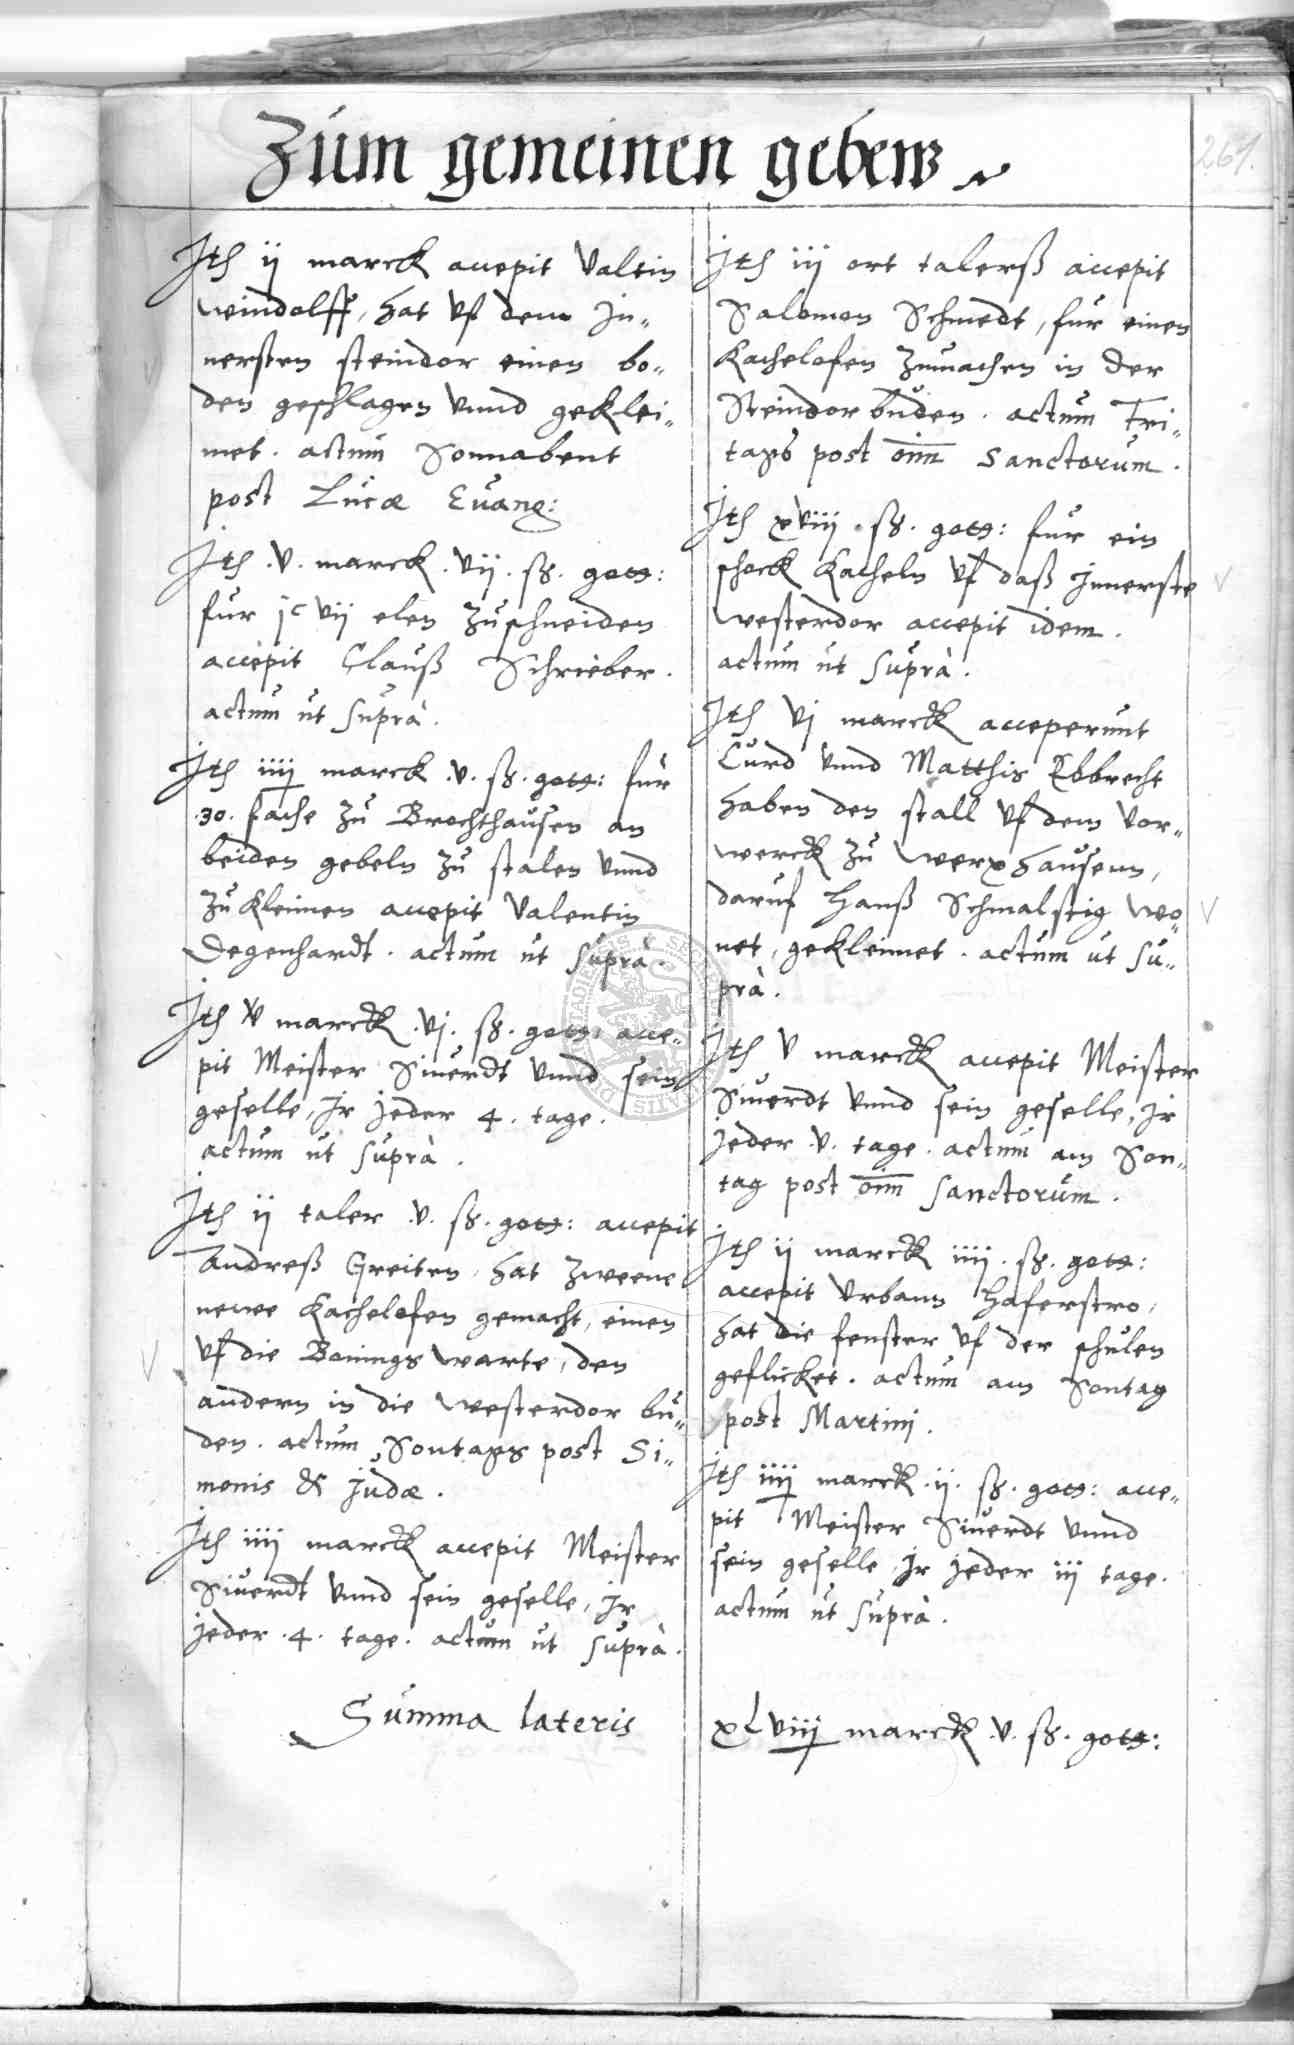 Zum gemeinen gebew
267.
Jth ij marck accepit Valtin
windolff, hat vf dem in„
nersten steindor einen bo„
den geschlagen vnnd geklei„
met. actum Sonnabent
post Lucæ Euang:
Jth .v. marck .vij. ß. gott:
fur jc vij elen zuschneiden
accepit Clauß Schrieber.
actum ut suprà.
Jth iiij marck .v. ß. gott: fur
.30. fache zu Brochthausen an
beiden gebeln zu stalen vnnd
zu kleimen accepit Valentin
Degenhardt. actum ut suprà.
Jth v marck .vj. ß. gott: acce„
pit Meister Siuerdt vnnd sein
geselle, Jr jeder 4. tage.
actum ut suprà.
Jth ij taler .v. ß. gott: accepit
Andreß Greiten, hat zweene
newe Kachelofen gemacht, einen
vf die Bonings warte, den
andern in die westerdor bu„
den. actum Sontags post Si„
monis & Judæ.
Jth iiij marck accepit Meister
Siuerdt vnnd sein geselle, Jr
jeder .4. tage. actum ut suprà.
Summa lateris
Jth iij ort talerß accepit
Salomon Schmedt, fur einen
Kachelofen zumachen in der
Steindor buden. actum Fri„
tags post oim Sanctorum.
Jth xviij . ß. gott: fur ein
schock Kacheln vf daß Jnnerste
westerdor accepit idem.
actum ut suprà.
Jth vj marck acceperunt
Curd vnnd Matthis Ebbrecht
haben den stall vf dem vor„
werck zu werxhausenn,
daruf Hanß Schmalstig wo„
net, gekleimet. actum ut su„
prà.
Jth v marck accepit Meister
Siuerdt vnnd sein geselle, Jr
jeder .v. tage. actum am Son„
tag post oim Sanctorum.
Jth ij marck iiij. ß. gott:
accepit Vrbann Haferstro,
hat die fenster vf der schulen
geflicket. actum am Sontag
post Martini.
Jth iiij marck .ij. ß. gott: acce„
pit Meister Siuerdt vnnd
sein geselle Jr jeder iij tage.
actum ut suprà.
xLviij marck .v. ß. gott: